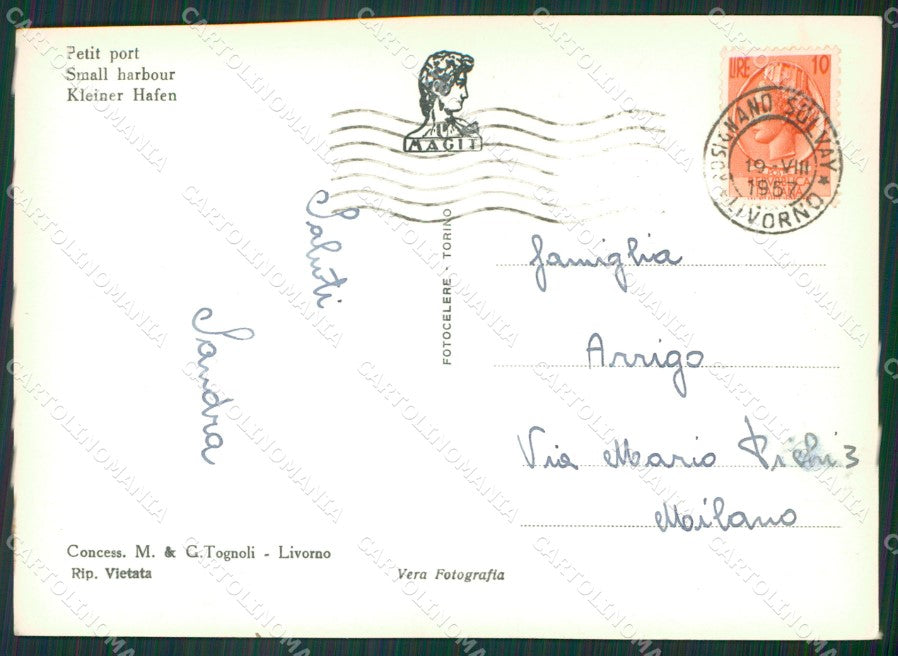 Petit port
Small harbour
Kleiner Hafen
MAGIT
LIRE 10
ROSIGNANO SOLVAY
19-VIII
1957
LIVORNO
Saluti
Sandra
FOTOCELERE - TORINO
famiglia
Arrigo
Via Mario Pichi 3
Milano
Concess. M. & G. Tognoli - Livorno
Rip. Vietata
Vera Fotografia
CARTOLINOMANIA